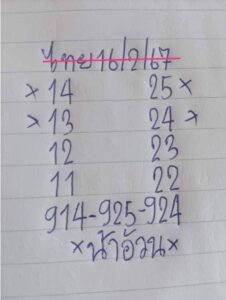 ไทย 16/2/67
×14 25×
×13 24×
12 23
11 22
914-925-924
×น้าอ้วน×